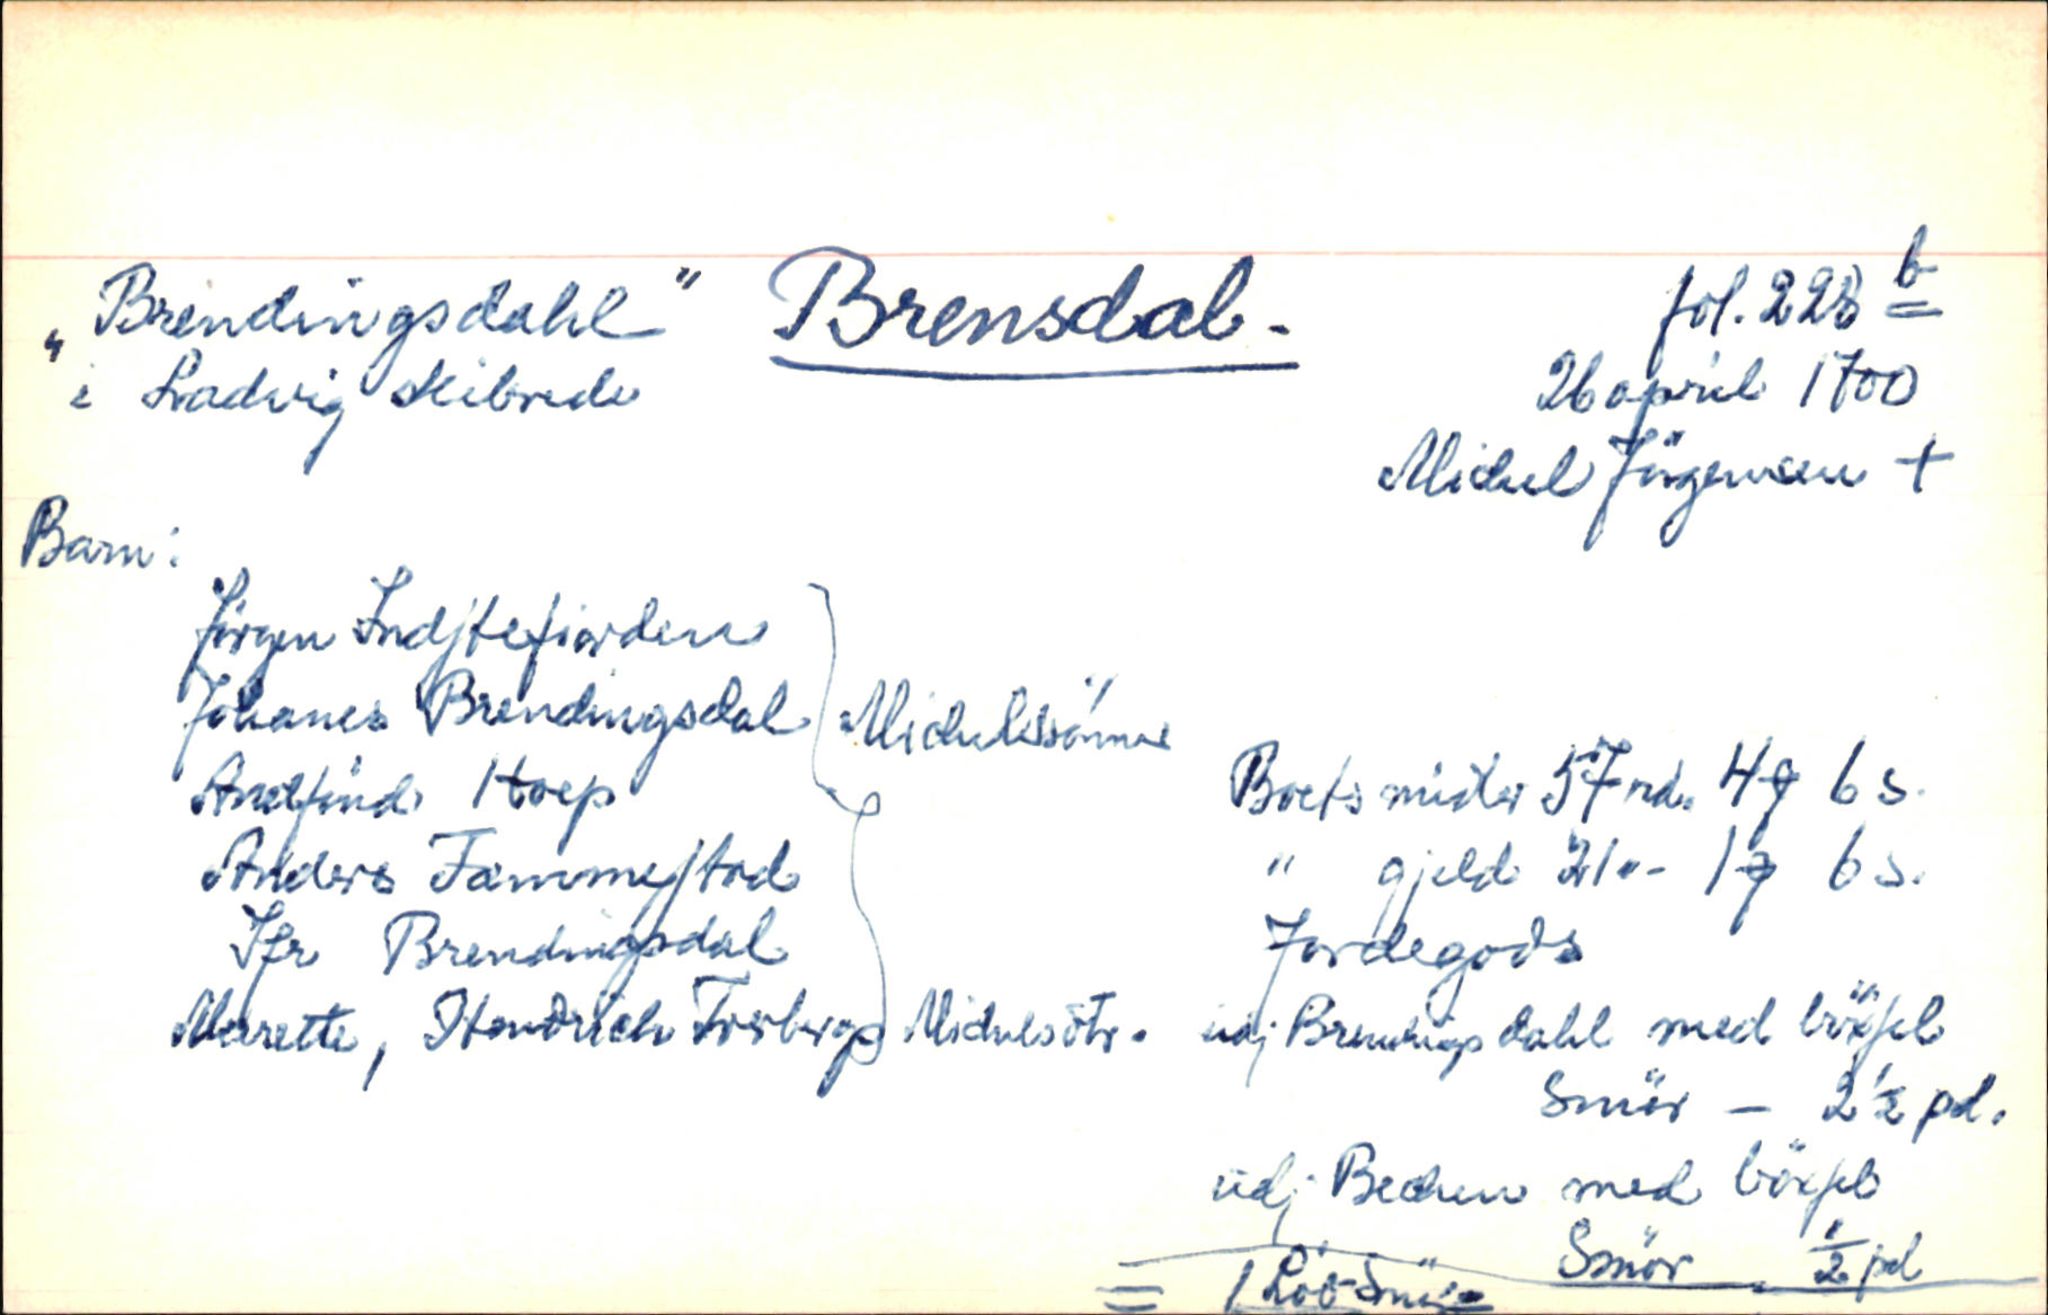 „Brendingsdahl" Brensdal.
fol. 228 b
i Ladvig skibrede
26 april 1700
Michel Jörgensen +
Barn:
Jörgen Indstefiorden
Johanes Brendingsdal
Michelssönner
Arnfind Hoep
Anders Tammestad
Ifr Brendingsdal
Merette, Hendrich Torbergs Michelsdtr.
Boets midler 57 rd. 4 ƒ 6 s.
" gjeld 21 "- 1 ƒ 6 s.
Jordegods
udj Brendingsdahl med böxsel
Smör – 2½ pd.
udj Becken med böxsel
Smör ½ pd
= 1 Löb Smör